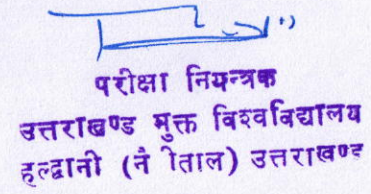 परीक्षा नियन्त्रक
उत्तराखण्ड मुक्त विश्वविद्यालय
हल्द्वानी (नै ीताल) उत्तराखण्ड